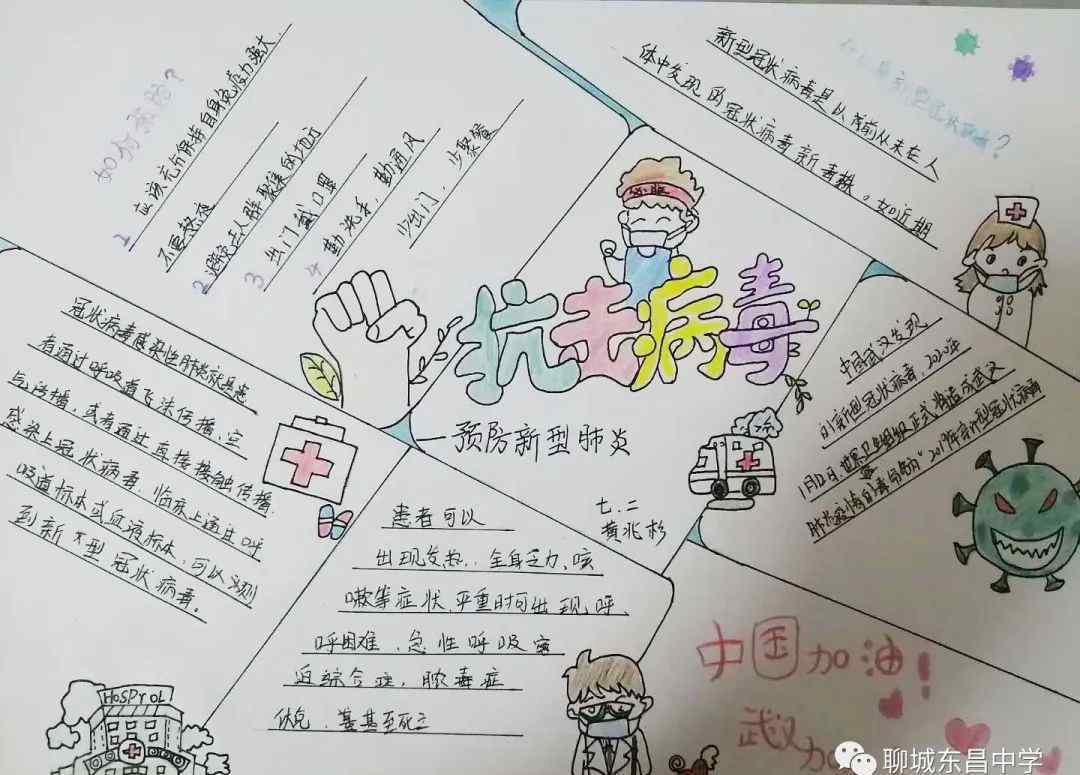 如何预防？
1 应该充分保持自身免疫力强大.
不要熬夜
2 避免去人群聚集的地方
3 出门戴口罩
4 勤洗手，勤通风
少出门，少聚餐
新型冠状病毒？
新型冠状病毒是以前从未在人
体中发现的冠状病毒新毒株。如近期
必胜
抗击病毒
—预防新型肺炎
七.二
黄兆杉
中国武汉发现
的新型冠状病毒，2020年
1月12日.世界卫生组织正式将造成武汉
肺炎疫情的毒命名为"2019年新型冠状病毒
冠状病毒感染性肺炎就是患
者通过呼吸道飞沫传播、
与传播，或者通过直接接触传播.
感染上冠状病毒，临床上通过呼
吸道标本或血液标本，可以测
到新型冠状病毒。
患者可以
出现发热.，全身乏力、咳
嗽等症状.严重时可出现呼
呼困难、急性呼吸窘
迫综合症，脓毒症
休克、甚至死亡
HOSPTOL
中国加油！
武汉加
聊城东昌中学